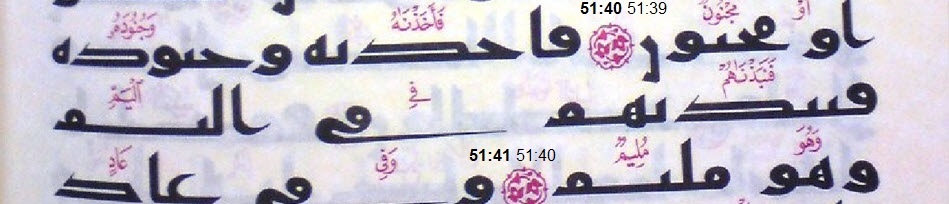 51:40 51:39
أَوْ مَجْنُونٌ فَأَخَذْنَٰهُ وَجُنُودَهُ
او مجنون فاخذنه وجنوده
فَنَبَذْنَاهُمْ فِي الْيَمِّ
فنبذنهم في اليم
51:41 51:40
وَهُوَ مُلِيمٌ وَفِي عَادٍ
وهو مليم وفي عاد